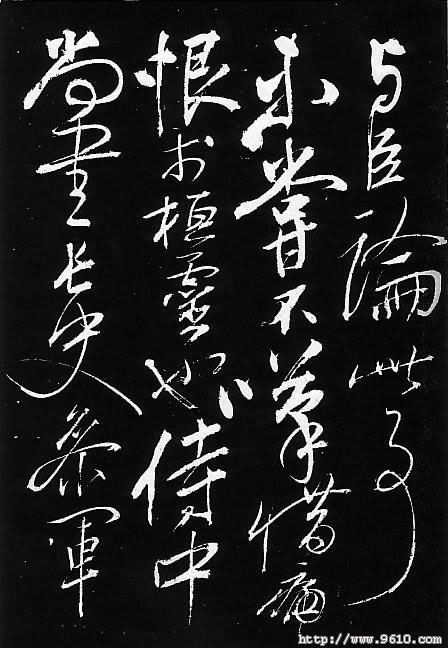 与臣論此事
未嘗不嘆惜痛
恨於桓靈也侍中
尚書長史參軍
http://www.9610.com